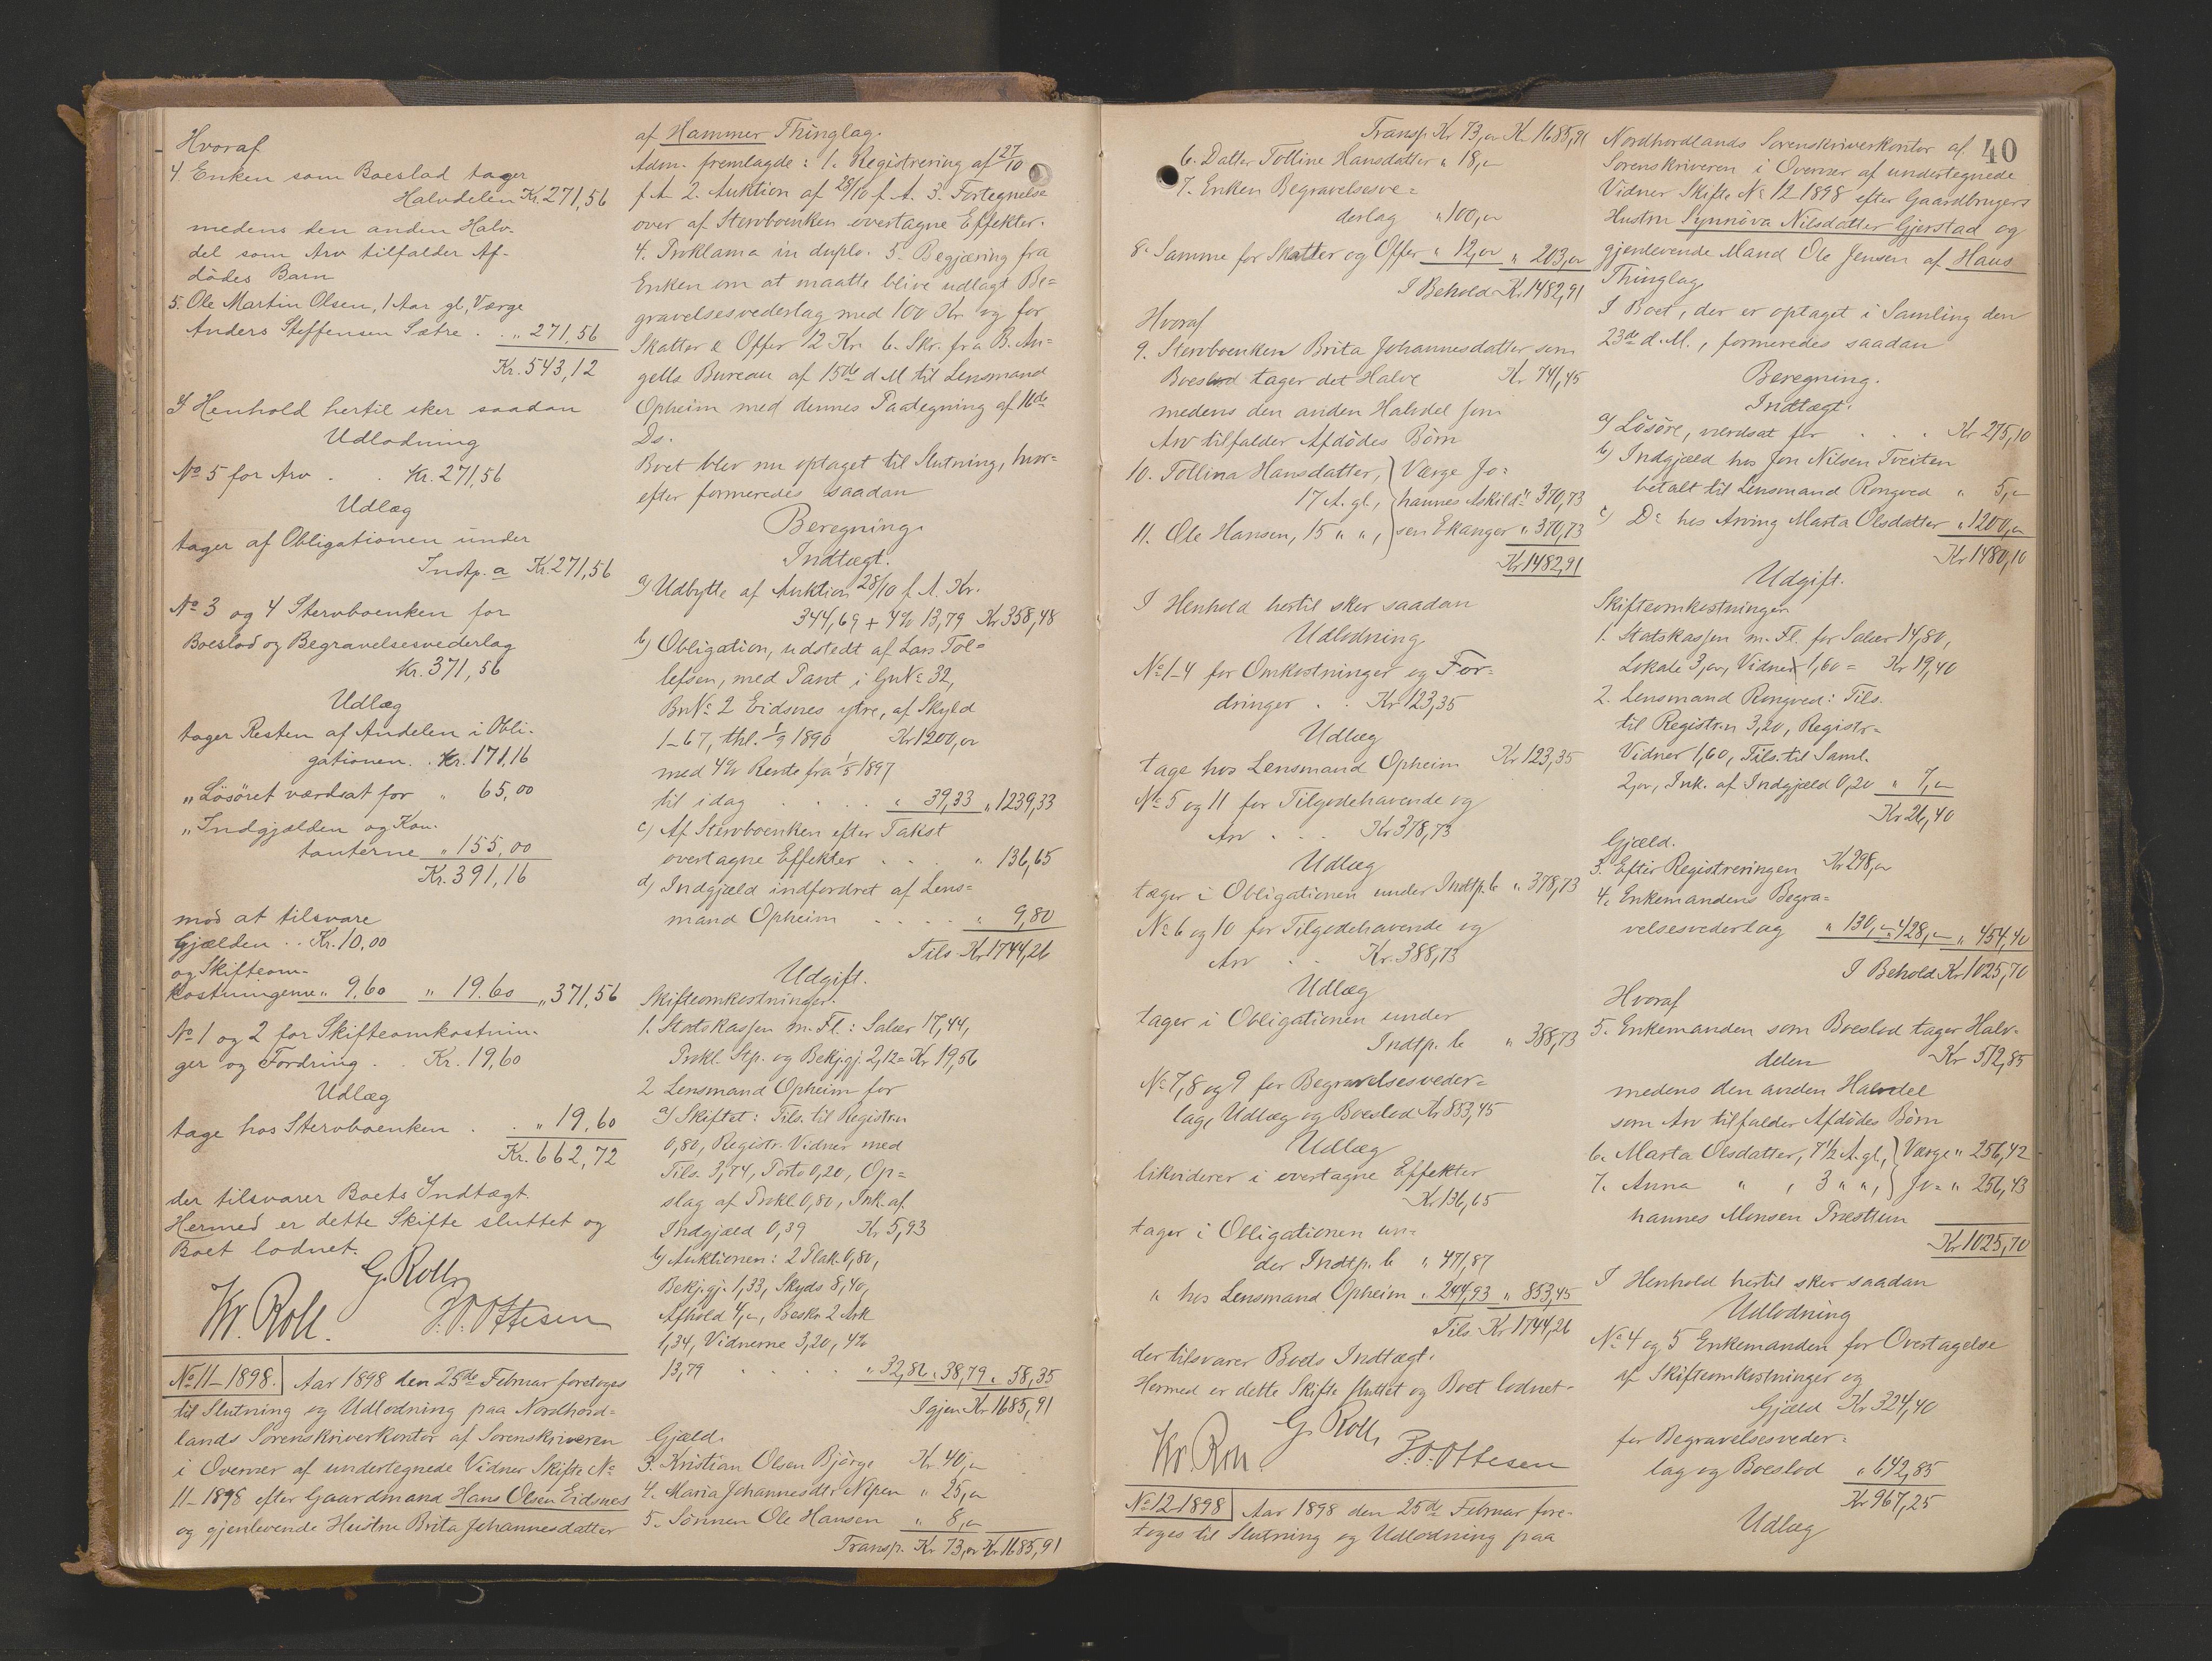 Hvoraf
4. Enken som Boeslod tager
Halvdelen Kr. 271,56
medens den anden Halv-
del som Arv tilfalder Af-
dödes Barn
5. Ole Martin Olsen, 1 Aar gl, Værge
Anders Steffensen Sætre . „ 271,56
Kr. 543,12
I Henhold hertil sker saadan
Udlodning
No 5 for Arv . . Kr. 271,56
Udlæg
tager af Obligationen under
Indtp. a Kr. 271,56
No 3 og 4 Stervboenken for
Boeslod og Begravelsesvederlag
Kr. 371,56
Udlæg
tager Resten af Andelen i Obli-
gationen . . Kr. 171,16
„ Lösöret værdsat for „ 65,00
„ Indgjælden og Kon-
tanterne „ 155,00
Kr. 391,16
mod at tilsvare
Gjælden . . Kr. 10,00
og Skifteom-
kostningerne „ 9,60 „ 19.60 „ 371,56
No 1 og 2 for Skifteomkostnin-
ger og Fordring . . Kr. 19,60
Udlæg
tage hos Stervboenken . . „ 19,60
Kr. 662,72
der tilsvarer Boets Indtægt.
Hermed er dette Skifte sluttet og
Boet lodnet.
G. Roll
Kr. Roll. J. O. Ottesen
No 11-1898. Aar 1898 den 25de Februar foretoges
til Slutning og Udlodning paa Nordhord-
lands Sorenskriverkontor af Sorenskriveren
i Overvær af undertegnede Vidner Skifte No
11-1898 efter Gaardmand Hans Olsen Eidsnes
og gjenlevende Hustru Brita Johannesdatter
af Hammer Thinglag.
Adm. fremlagde: 1. Registrering af 27/10
f. A. 2. Auktion af 28/10 f. A. 3. Fortegnelse
over af Stervboenken overtagne Effekter.
4. Proklama in duplo. 5. Begjæring fra
Enken om at maatte blive udlagt Be-
gravelsesvederlag med 100 Kr. og for
Skatter & Offer 12 Kr. 6. Skr. fra B. An-
gells Bureau af 15de d M til Lensmand
Opheim med dennes Paategning af 16de
Ds.
Boet blev nu optaget til Slutning, hvor-
efter formeredes saadan
Beregning.
Indtægt.
a) Udbytte af Auktion 28/10 f. A. Kr.
344,69 + 4% 13,79 Kr 358,48
b) Obligation, udstedt af Lars Tol-
lefsen, med Pant i GnNo 32,
BnNo 2 Eidsnes ytre, af Skyld
1-67, thl. 1/9 1890 Kr 1200,oo
med 4% Rente fra 1/5 1897
til idag . . . . „ 39,33 „ 1239,33
c) Af Stervboenken efter Takst
overtagne Effekter . . . „ 136,65
d) Indgjæld indfordret af Lens-
mand Opheim . . . . „ 9,80
Tils. Kr 1744,26
Udgift.
Skifteomkostninger.
1. Statskassen m. Fl.: Salær 17,44,
Prokl. Stp. og Bekj.gj. 2,12 = Kr 19,56
2 Lensmand Opheim for
a) Skiftet: Tils. til Registr.n
0,80, Registr. Vidner med
Tils. 3,74, Porto 0,20, Op-
slag af Prokl. 0,80, Ink. af
Indgjæld 0,39 Kr. 5,93
b) Auktionen: 2 Plak. 0,80,
Bekj.gj. 1,33, Skyds 8,40,
Afhold 4,-, Beskr. 2 Ark
1,34, Vidnerne 3,20, 4%
13,79 . . . „ 32,86 „ 38,79 „ 58,35
Igjen Kr 1685,91
Gjæld.
3. Kristian Olsen Björge Kr. 40,-
4. Maria Johannesdtr Nipen „ 25,-
5. Sönnen Ole Hansen „ 8,-
Transp. Kr 73,oo Kr 1685,91
40
Transp. Kr 73,oo Kr. 1685,91
6. Datter Tolline Hansdatter „ 18,-
7. Enken Begravelsesve-
derlag „ 100,oo
8. Samme for Skatter og Offer „ 12,oo „ 203,oo
I Behold Kr 1482,91
Hvoraf
9. Stervboenken Brita Johannesdatter som
Boeslod tager det Halve Kr 741,45
medens den anden Halvdel som
Arv tilfalder Afdödes Börn
10. Tollina Hansdatter, Værge Jo-
17 A. gl., hannes Askild- „ 370,73
11. Ole Hansen, 15 „ „, sen Ekanger „ 370,73
Kr 1482,91
I Henhold hertil sker saadan
Udlodning
No 1-4 for Omkostninger og For-
dringer . . Kr 123,35
Udlæg
tage hos Lensmand Opheim Kr 123,35
No 5 og 11 for Tilgodehavende og
Arv . . . Kr 378,73
Udlæg
tager i Obligationen under Indtp. b „ 378,73
No 6 og 10 for Tilgodehavende og
Arv . . Kr. 388,73
Udlæg
tager i Obligationen under
Indtp. b „ 388,73
No 7, 8 og 9 for Begravelsesveder-
lag, Udlæg og Boeslod Kr 853,45
Udlæg
likviderer i overtagne Effekter
Kr 136,65
tager i Obligationen un-
der Indtp. b „ 471,87
„ hos Lensmand Opheim „ 244,93 „ 853,45
Tils. Kr 1744,26
der tilsvarer Boets Indtægt.
Hermed er dette Skifte sluttet og Boet lodnet.
G. Roll,
Kr. Roll. J. O. Ottesen
No 12-1898 Aar 1898 den 25de Februar fore-
toges til Slutning og Udlodning paa
Nordhordlands Sorenskriverkontor af
Sorenskriveren i Overvær af undertegnede
Vidner Skifte No 12-1898 efter Gaardbrugers
Hustru Synnöva Nilsdatter Gjerstad og
gjenlevende Mand Ole Jensen af Haus
Thinglag.
I Boet, der er optaget i Samling den
23de d. M., formeredes saadan
Beregning.
Indtægt.
a) Lösöre, værdsat for . . . Kr 275,10
b) Indgjæld hos Jon Nilsen Tveiten
betalt til Lensmand Rongved „ 5,-
c) Do hos Arving Marta Olsdatter „ 1200,oo
Kr 1480,10
Udgift.
Skifteomkostninger
1. Statskassen m. Fl. for Salær 14,80,
Lokale 3,oo, Vidner 1,60 = Kr 19,40
2. Lensmand Rongved: Tils.
til Registr.n 3,20, Registr-
Vidner 1,60, Tils. til Saml.
2,oo, Ink. af Indgjæld 0,20 „ 7,-
Kr 26,40
Gjæld.
3. Efter Registreringen Kr 298,oo
4. Enkemandens Begra-
velsesvederlag „ 130,- „ 428,- „ 454,40
I Behold Kr 1025,70
Hvoraf
5. Enkemanden som Boeslod tager Halv-
delen Kr 512,85
medens den anden Halvdel
som Arv tilfalder Afdödes Börn
6. Marta Olsdatter, 7 1/2 A. gl., Værge „ 256,42
7. Anna „ , 3 „ „, Jo- „ 256,43
hannes Monsen Træsttun
Kr 1025,70
I Henhold hertil sker saadan
Udlodning
No 4 og 5 Enkemanden for Overtagelse
af Skifteomkostninger og
Gjæld Kr 324,40
for Begravelsesveder-
lag og Boeslod „ 642,85
Kr 967,25
Udlæg